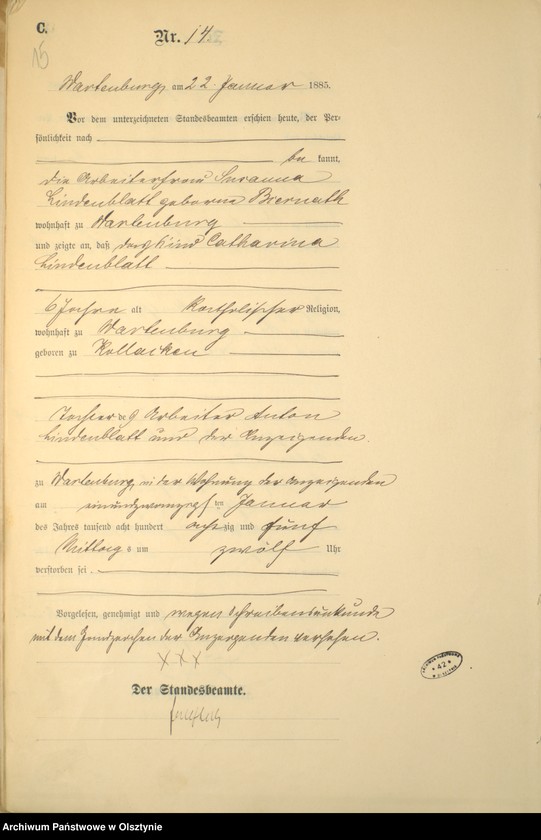 C.
Nr. 14
15
Wartenburg, am 22 Januar 1885.
Vor dem unterzeichneten Standesbeamten erschien heute, der Per-
sönlichkeit nach
be kannt,
die Arbeiterfrau Susanna
Lindenblatt geborene Biernath
wohnhaft zu Wartenburg
und zeigte an, daß das Kind Catharina
Lindenblatt
6 Jahre alt katholischer Religion,
wohnhaft zu Wartenburg
geboren zu Kollacken
Tochter des Arbeiter Anton
Lindenblatt und der Anzeigenden.
zu Wartenburg, in der Wohnung der Anzeigenden
am einundzwanzigsten Januar
des Jahres tausend acht hundert achtzig und fünf
Mittags um zwölf Uhr
verstorben sei.
Vorgelesen, genehmigt und wegen Schreibensunkunde
mit dem Handzeichen der Anzeigenden versehen.
X X X
Der Standesbeamte.
42
Archiwum Państwowe w Olsztynie